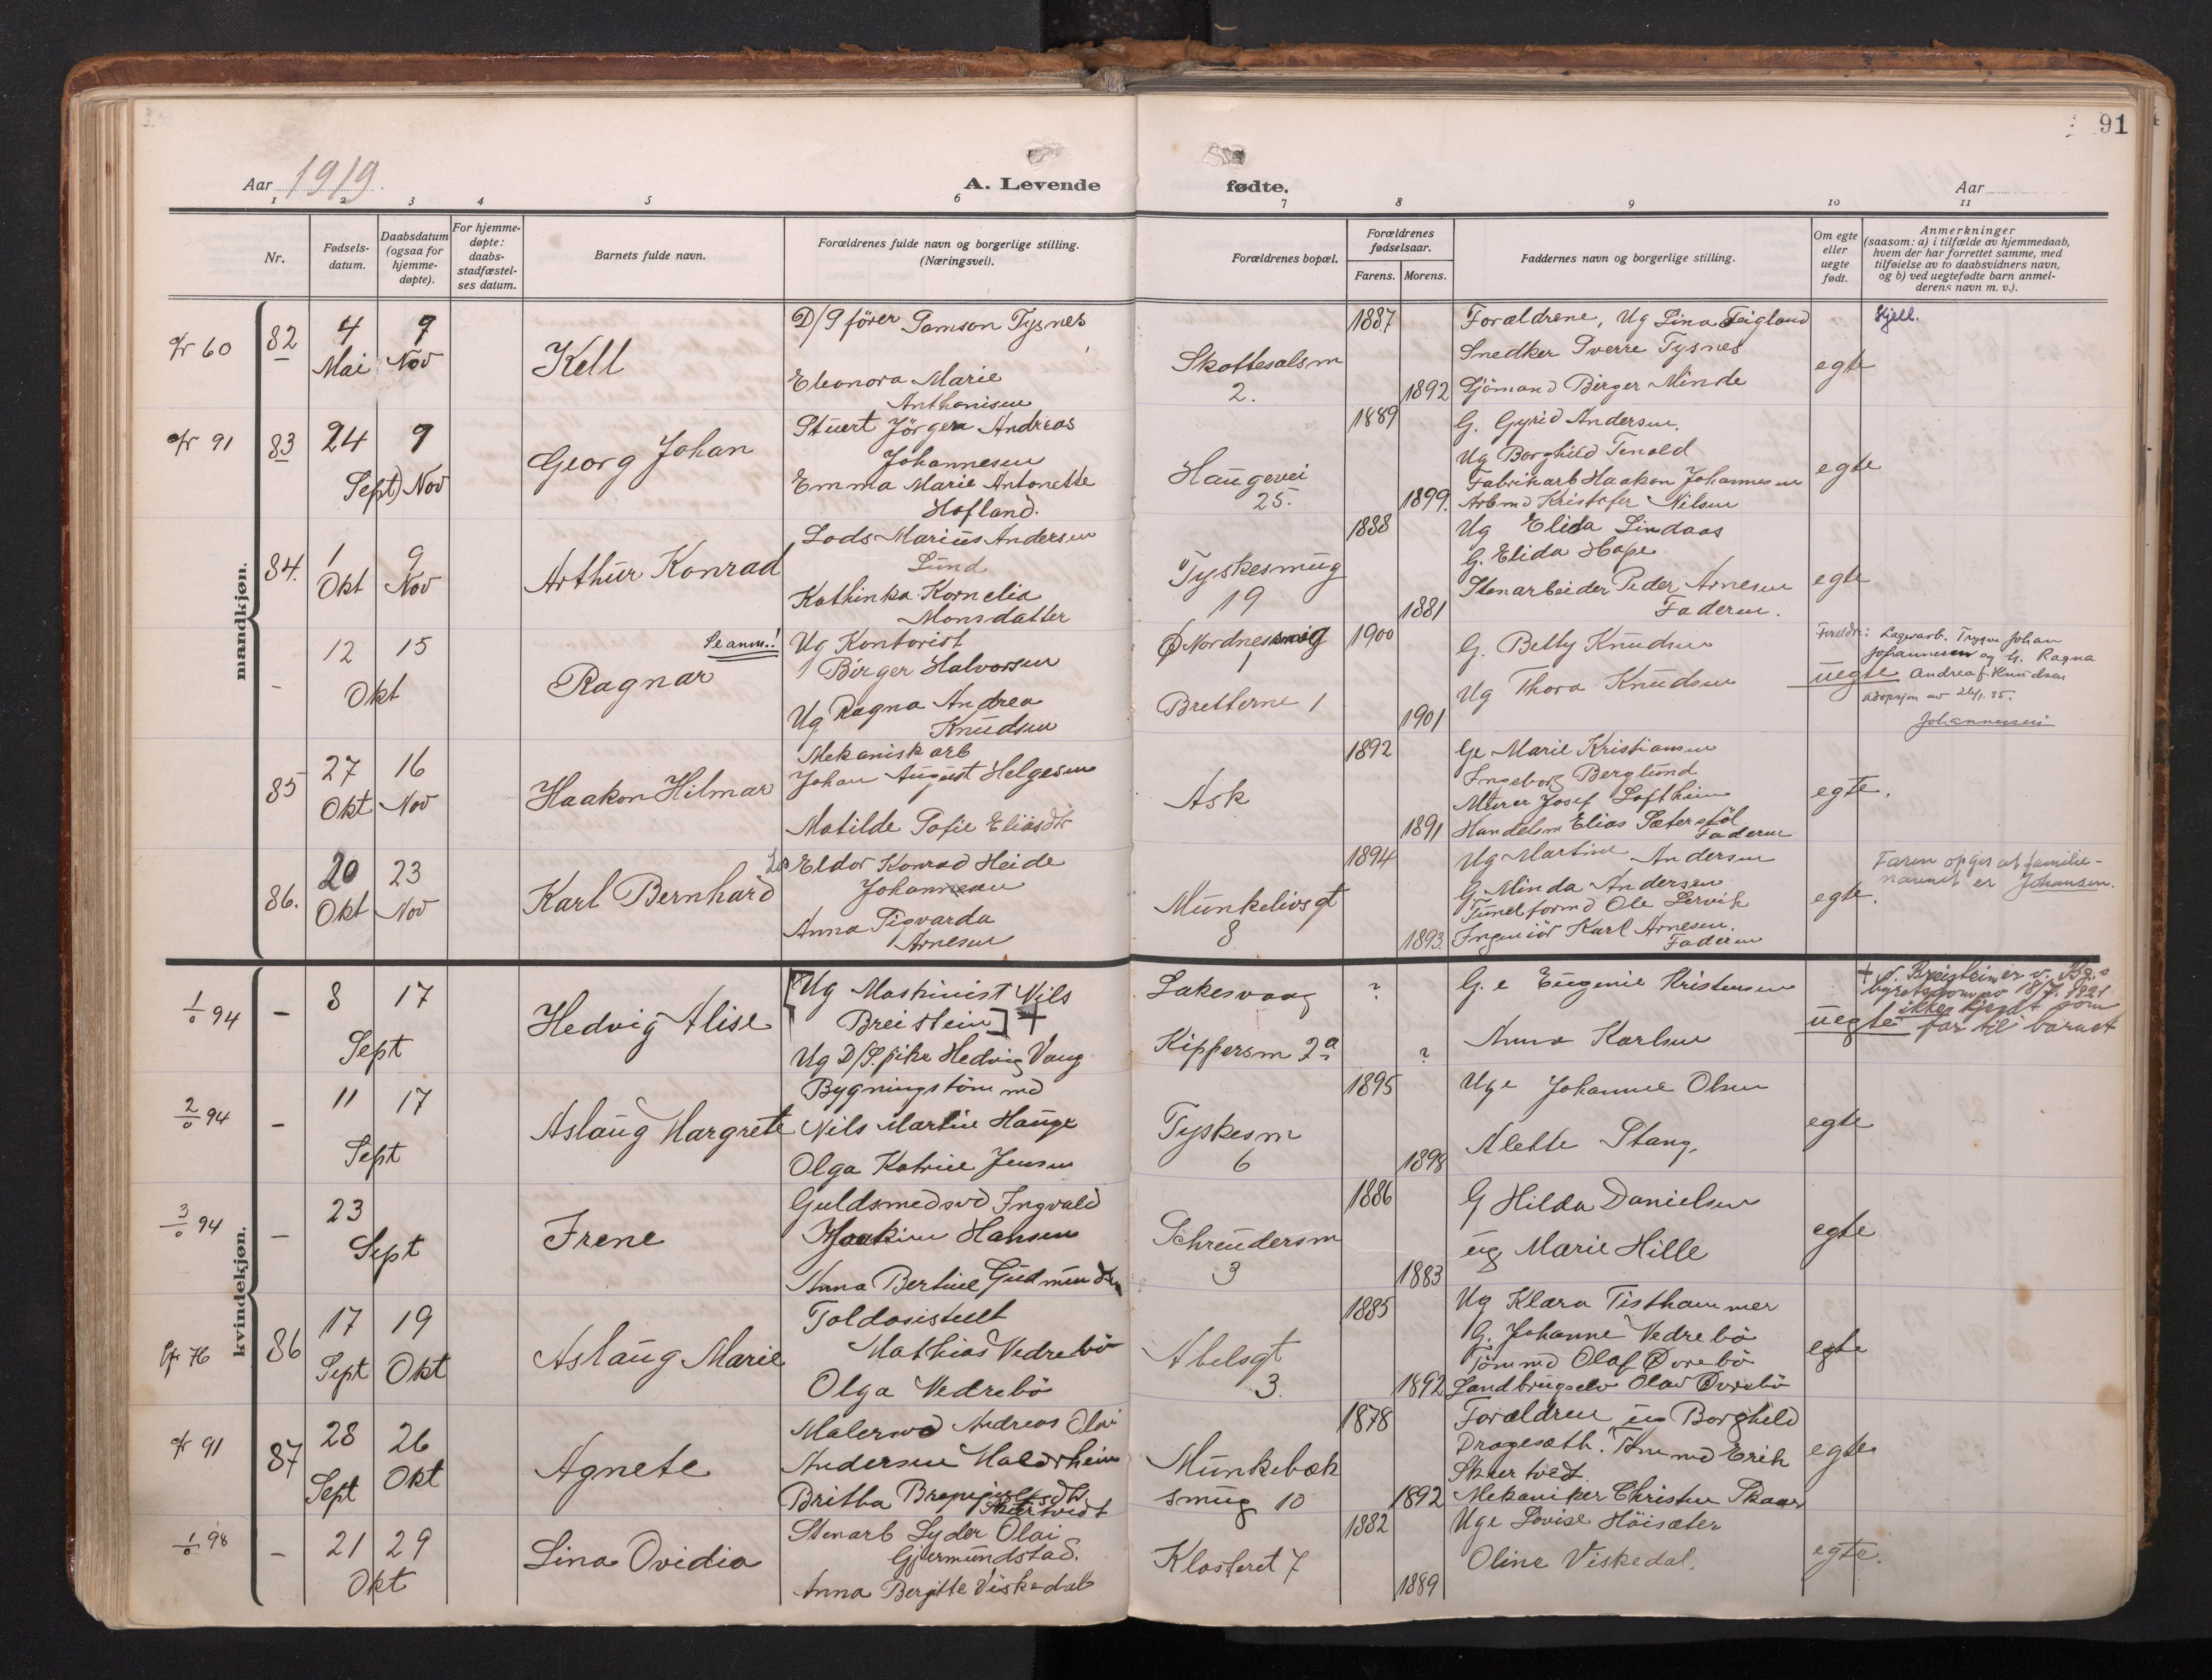 91
Aar 1919.
A. Levende
fødte.
Aar
1 2 3 4 5 6 7 8 9 10 11
Nr.
Fødsels-
datum.
Daabsdatum
(ogsaa for
hjemme-
døpte).
For hjemme-
døpte:
daabs-
stadfæstel-
ses datum.
Barnets fulde navn.
Forældrenes fulde navn og borgerlige stilling.
(Næringsvei).
Forældrenes bopæl.
Forældrenes
fødselsaar.
Farens. Morens.
Faddernes navn og borgerlige stilling.
Om egte
eller
uegte
født.
Anmerkninger
(saasom: a) i tilfælde av hjemmedaab,
hvem der har forrettet samme, med
tilføielse av to daabsvidners navn,
og b) ved uegtefødte barn anmel-
derens navn m. v.).
mandkjøn.
60
82
4 9
Mai Nov
Kell
D/S fører Samson Tysnes
Eleonora Marie
Anthonisen
Skottesalsm
2.
1887
1892
Forældrene, Ug Lina Feigland
Snedker Sverre Tysnes
Sjömand Birger Minde
egte
Kjell.
91
83
24 9
Sept Nov
Georg Johan
Stuert Jörgen Andreas
Johannesen
Emma Marie Antonette
Hofland.
Haugevei
25.
1889
1899.
G. Gyrid Andersen.
Ug Borghild Tenold
Fabrikarb Haakon Johannesen
Arbmd Kristofer Nilsen
egte
84.
1 9
Okt Nov
Arthur Konrad
Lods Marius Andersen
Lund
Kathinka Kornelia
Monsdatter
Tyskesmug
19
1888
1881
Ug Elida Lindaas
G. Elida Hope
Stenarbeider Peder Arnesen
Faderen.
egte
-
12 15
Okt
Se anm.!
Ragnar
Ug Kontorist
Birger Halvorsen
Ug Ragna Andrea
Knudsen
Ø Nordnessmug
1
Bretterne 1
1900
1901
G. Betty Knudsen
Ug Thora Knudsen
uegte
Foreldre: Lagerarb. Trygve Johan
Johannesen og H. Ragna
Andrea f. Knudsen
adopsjon av
Johannessen
85
27 16
Okt Nov
Haakon Hilmar
Mekanisk arb
Johan August Helgesen
Matilde Sofie Eliasdtr
Ask
1892
1891
Ge Marie Kristiansen
Ingeborg Berglund
Murer Josef Loftheim
Handelsm Elias Sæterstöl
Faderen
egte.
86.
20 23
Okt Nov
Karl Bernhard
Eldor Konrad Heide
Johannesen
Anna Sigvarda
Arnesen
Munkelivsgt
8
1894
1893.
Ug Martine Andersen
G Minda Andersen
Tunelformd Ole Lervik
Ingeniör Karl Arnesen.
Faderen
egte.
Faren opgir at familie-
navnet er Johansen.
kvindekjøn.
1/0 94
-
8 17
Sept
Hedvig Alise
[Ug Maskinist Nils
Breistein] +
Ug D/S. pike Hedvig Vang
Laksevaag
Kippersm 2a
?
?
G. e Eugenie Kristensen
Anna Karlsen
uegte
+ N. Breistein er v. Bg.s
byretsdom av 18/7. 1921
ikke kjendt som
far til barnet
2/0 94
-
11 17
Sept
Aslaug Margrete
Bygningstömmd
Nils Martin Hauge
Olga Katrine Jensen
Tyskesm
6
1895
1898
Uge Johanne Olsen
Alette Stang,
egte
3/0 94
-
23
Sept
Irene
Guldsmedsvd Ingvald
Joakim Hansen
Anna Bertine Gudmundsen
Schreudersm
3
1886
1883
G Hilda Danielsen
ug Marie Hille
egte
76
86
17 19
Sept Okt
Aslaug Marie
Toldasistent
Mathias Vedrebö
Olga Vedrebö
Abelsgt
3.
1885
1892
Ug Klara Tisthammer
G. Johanne Vedrebö
Tömmd Olaf Övrebö
Landbrugselv Olav Övrebö
egte
91
87
28 26
Sept Okt
Agnete
Malersvd Andreas Olai
Andersen Haldorheim
Britha
Skartvedt
Munkebæk
smug 10
1878
1892
Forældren, ug Borghild
Dragesæth. Tömmd Erik
Skartvedt.
Mekaniker Christen Skaar
egte
1/0 98
-
21 29
Okt
Lina Ovidia
Stenarb Lyder Olai
Gjermundstad.
Anna Bergitte Viskedal
Klosteret 7
1882
1889
Uge Lovise Höisæter
Oline Viskedal.
egte.